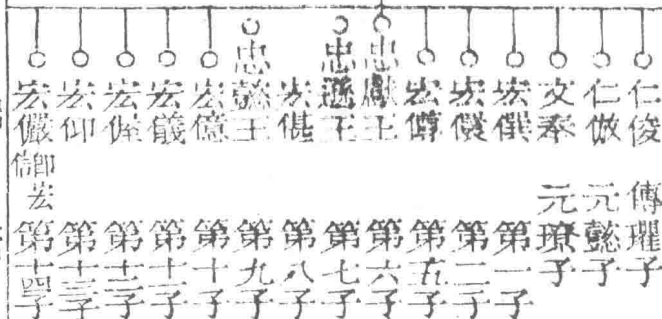 仁俊 傳瓘子
仁倣 元懿子
文奉 元璙子
宏僎 第一子
宏儇 第二子
宏僔 第五子
忠獻王 第六子
忠遜王 第七子
宏偡 第八子
忠懿王 第九子
宏億 第十子
宏儀 第十一子
宏偓 第十二子
宏仰 第十三子
宏儼 卽宏信 第十四子